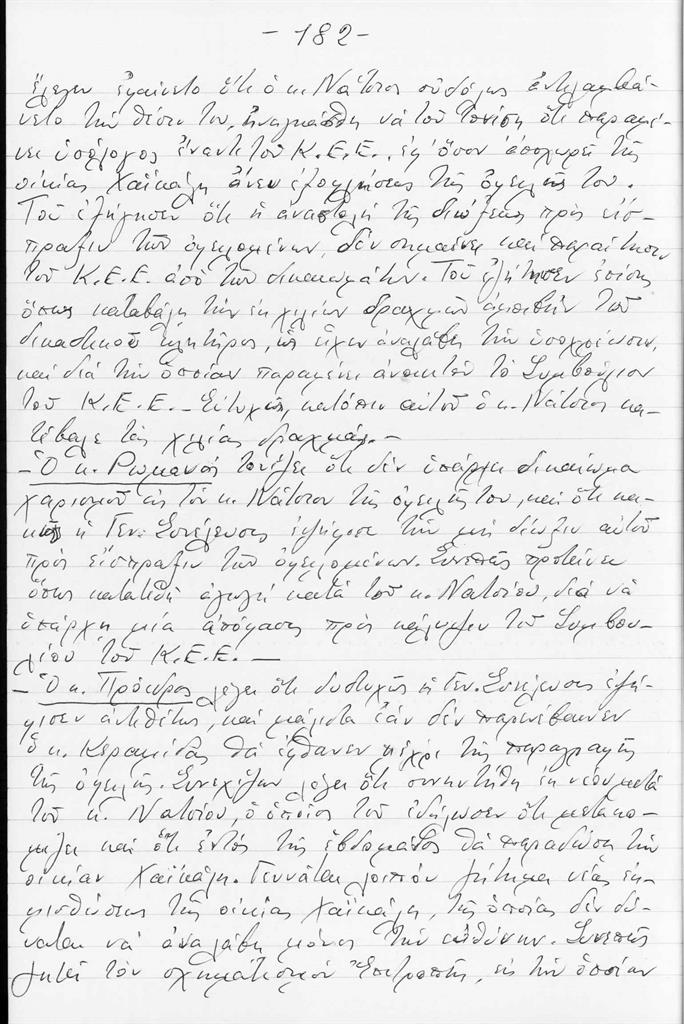 - 182 -
ἔλεγεν ἐφαίνετο ὅτι ὁ κ. Νάτσιος οὐδόλως ἀντελαμβά-
νετο τὴν θέσιν του, ἠναγκάσθη νὰ τοῦ τονίση ὅτι παραμέ-
νει ὑπόλογος ἔναντι τοῦ Κ.Ε.Ε., ἐφ' ὅσον ἀποχωρεῖ τῆς
οἰκίας Χαϊκάλη ἄνευ ἐξοφλήσεως τῆς ὀφειλῆς του.
Τοῦ ἐξήγησεν ὅτι ἡ ἀναστολὴ τῆς διώξεως πρὸς εἴσ-
πραξιν τῶν ὀφειλομένων, δὲν σημαίνει καὶ παραίτησιν
τοῦ Κ.Ε.Ε. ἀπὸ τῶν δικαιωμάτων. Τοῦ ἐζήτησεν ἐπίσης
ὅπως καταβάλη τὴν ἐκ χιλίων δραχμῶν ἀμοιβὴν τοῦ
δικαστικοῦ κλητῆρος, ὡς εἶχεν ἀναλάβει τὴν ὑποχρέωσιν,
καὶ διὰ τὴν ὁποίαν παραμένει ἀνοικτὸν τὸ Συμβούλιον
τοῦ Κ.Ε.Ε. - Εὐτυχῶς, κατόπιν αὐτοῦ ὁ κ. Νάτσιος κα-
τέβαλε τὰς χιλίας δραχμάς. -
- Ὁ κ. Ρωμανὸς τονίζει ὅτι δὲν ὑπάρχει δικαίωμα
χαρισμοῦ εἰς τὸν κ. Νάτσιον τῆς ὀφειλῆς του, καὶ ὅτι κα-
κῶς ἡ Γεν. Συνέλευσις ἐψήφισε τὴν μὴ δίωξιν αὐτοῦ
πρὸς εἴσπραξιν τῶν ὀφειλομένων. Συνεπῶς προτείνει
ὅπως κατατεθῆ ἀγωγὴ κατὰ τοῦ κ. Νατσίου, διὰ νὰ
ὑπάρχη μία ἀπόφασις πρὸς κάλυψιν τοῦ Συμβου-
λίου τοῦ Κ.Ε.Ε. -
- Ὁ κ. Πρόεδρος λέγει ὅτι δυστυχῶς ἡ Γεν. Συνέλευσις ἐψή-
φισεν ἀντιθέτως, καὶ μάλιστα ἐὰν δὲν παρενέβαινεν
ὁ κ. Κεραμίδας θὰ ἔφθανεν μέχρι τῆς παραγραφῆς
τῆς ὀφειλῆς. Συνεχίζων λέγει ὅτι συνητήθη ἐκ νέου μετὰ
τοῦ κ. Νατσίου, ὁ ὁποῖος τοῦ ἐδήλωσεν ὅτι μετακο-
μίζει καὶ ὅτι ἐντὸς τῆς ἑβδομάδος θὰ παραδώση τὴν
οἰκίαν Χαϊκάλη. Γεννᾶται λοιπὸν ζήτημα νέας ἐκ-
μισθώσεως τῆς οἰκίας Χαϊκάλη, τῆς ὁποίας δὲν δύ-
ναται νὰ ἀναλάβη μόνος τὴν εὐθύνην. Συνεπῶς
ζητεῖ τὸν σχηματισμὸν Ἐπιτροπῆς, εἰς τὴν ὁποίαν